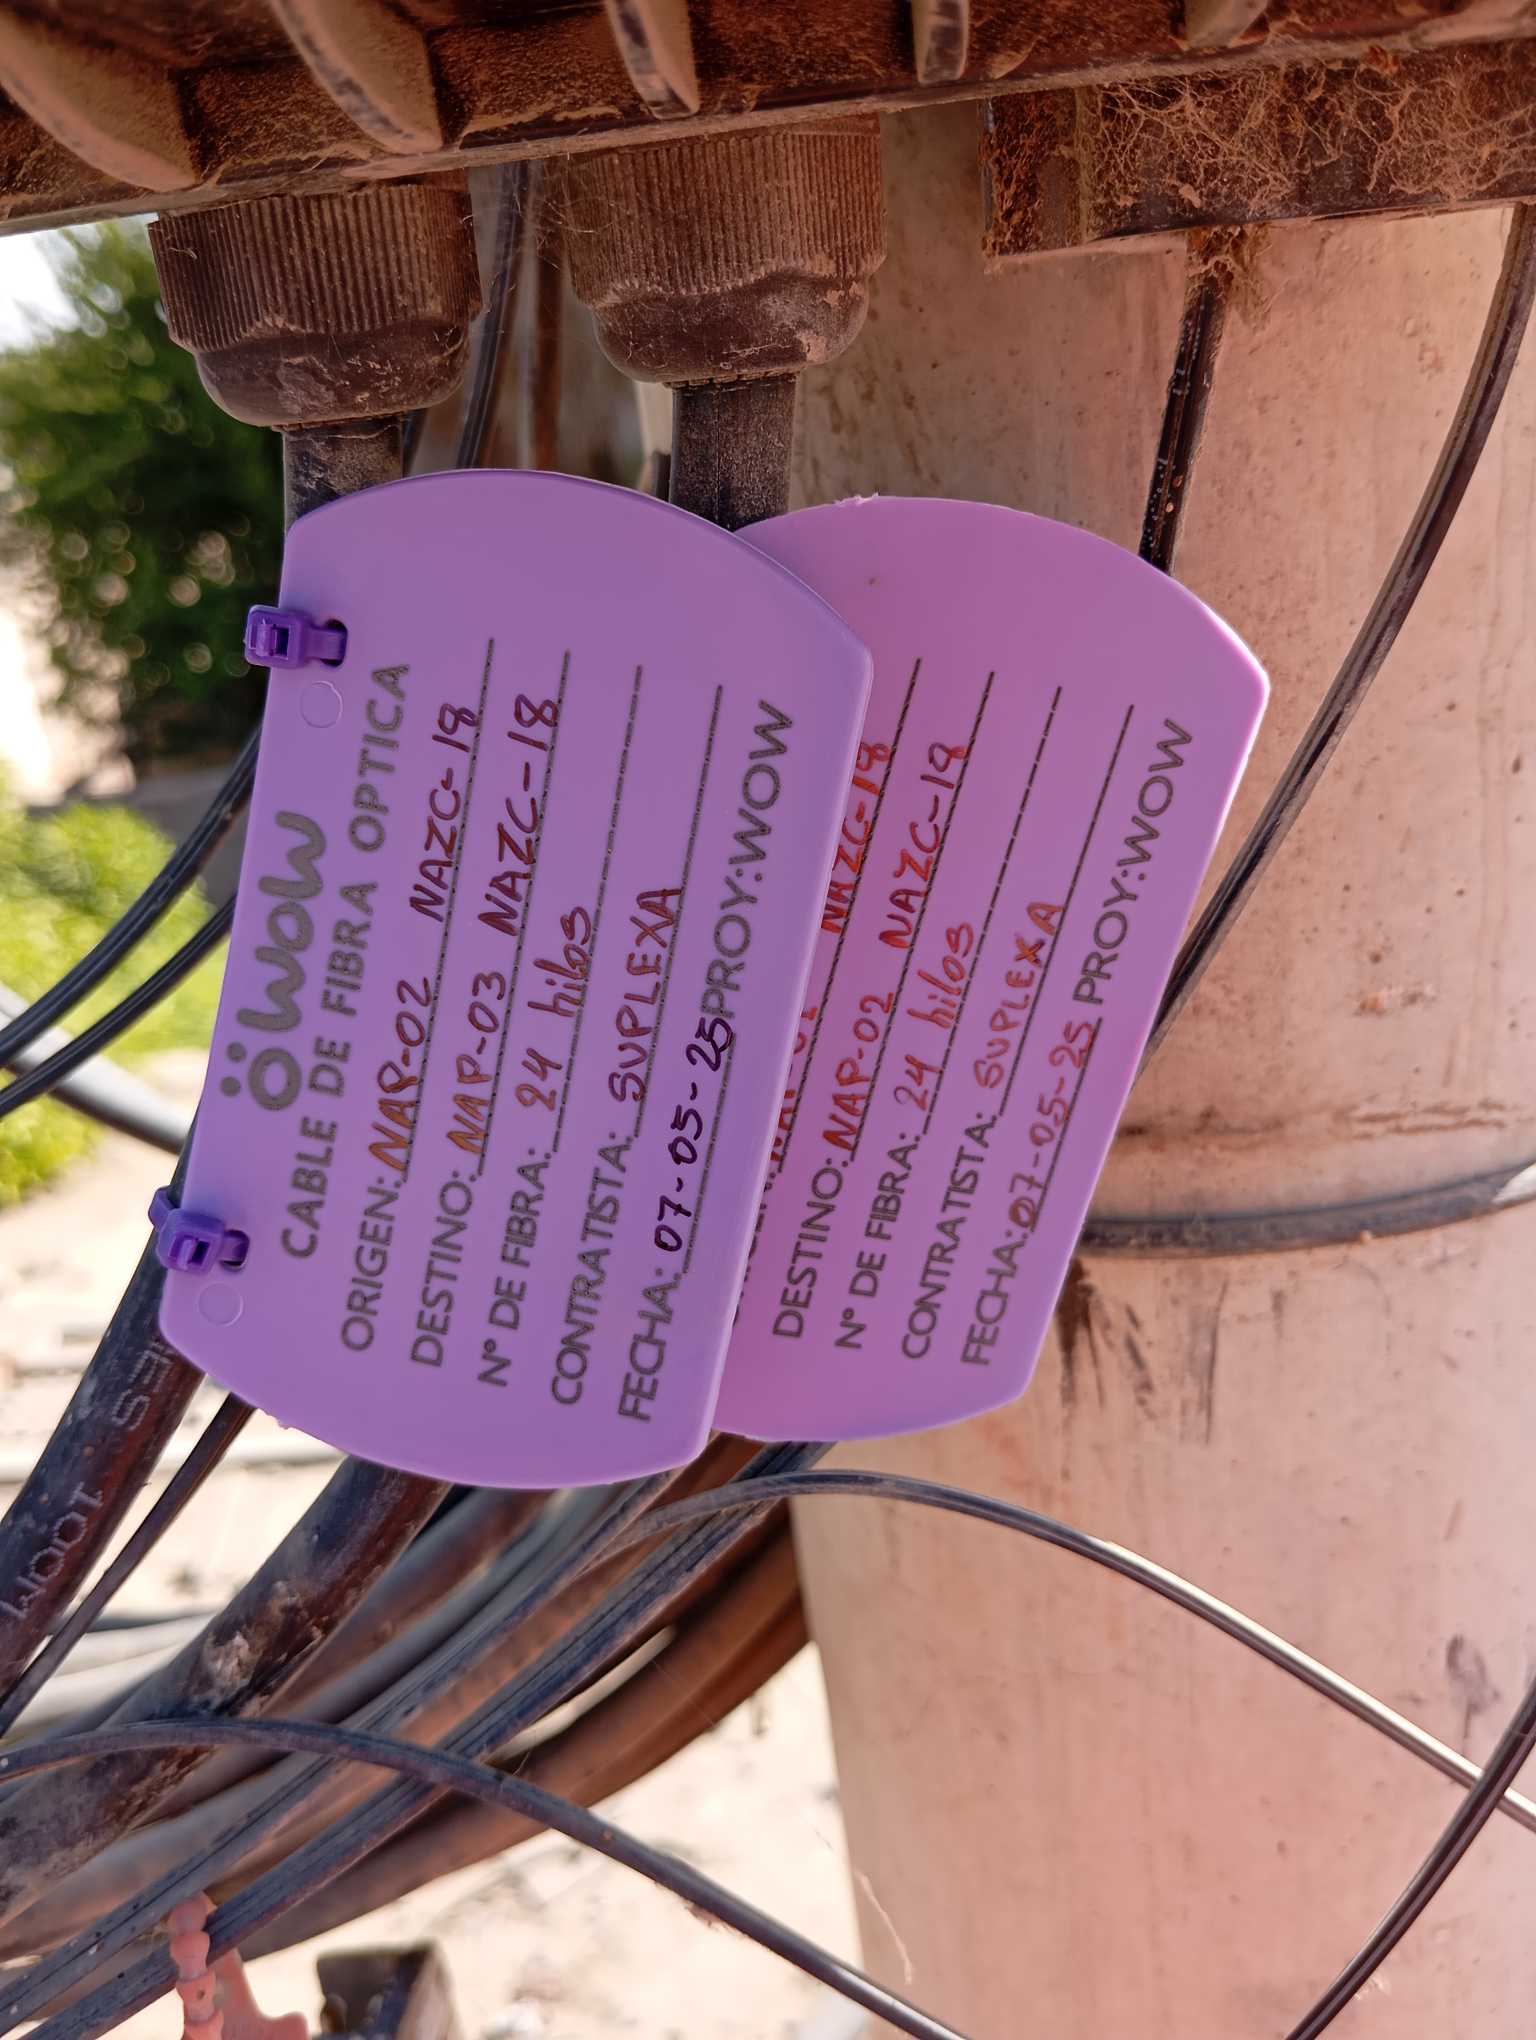 wow
CABLE DE FIBRA OPTICA
ORIGEN: NAP-02 NAZC-18
DESTINO: NAP-03 NAZC-18
N° DE FIBRA: 24 hilos
CONTRATISTA: SUPLEXA
FECHA: 07-05-25 PROY:WOW
NAZC-18
DESTINO: NAP-02 NAZC-18
N° DE FIBRA: 24 hilos
CONTRATISTA: SUPLEXA
FECHA: 07-05-25 PROY:WOW